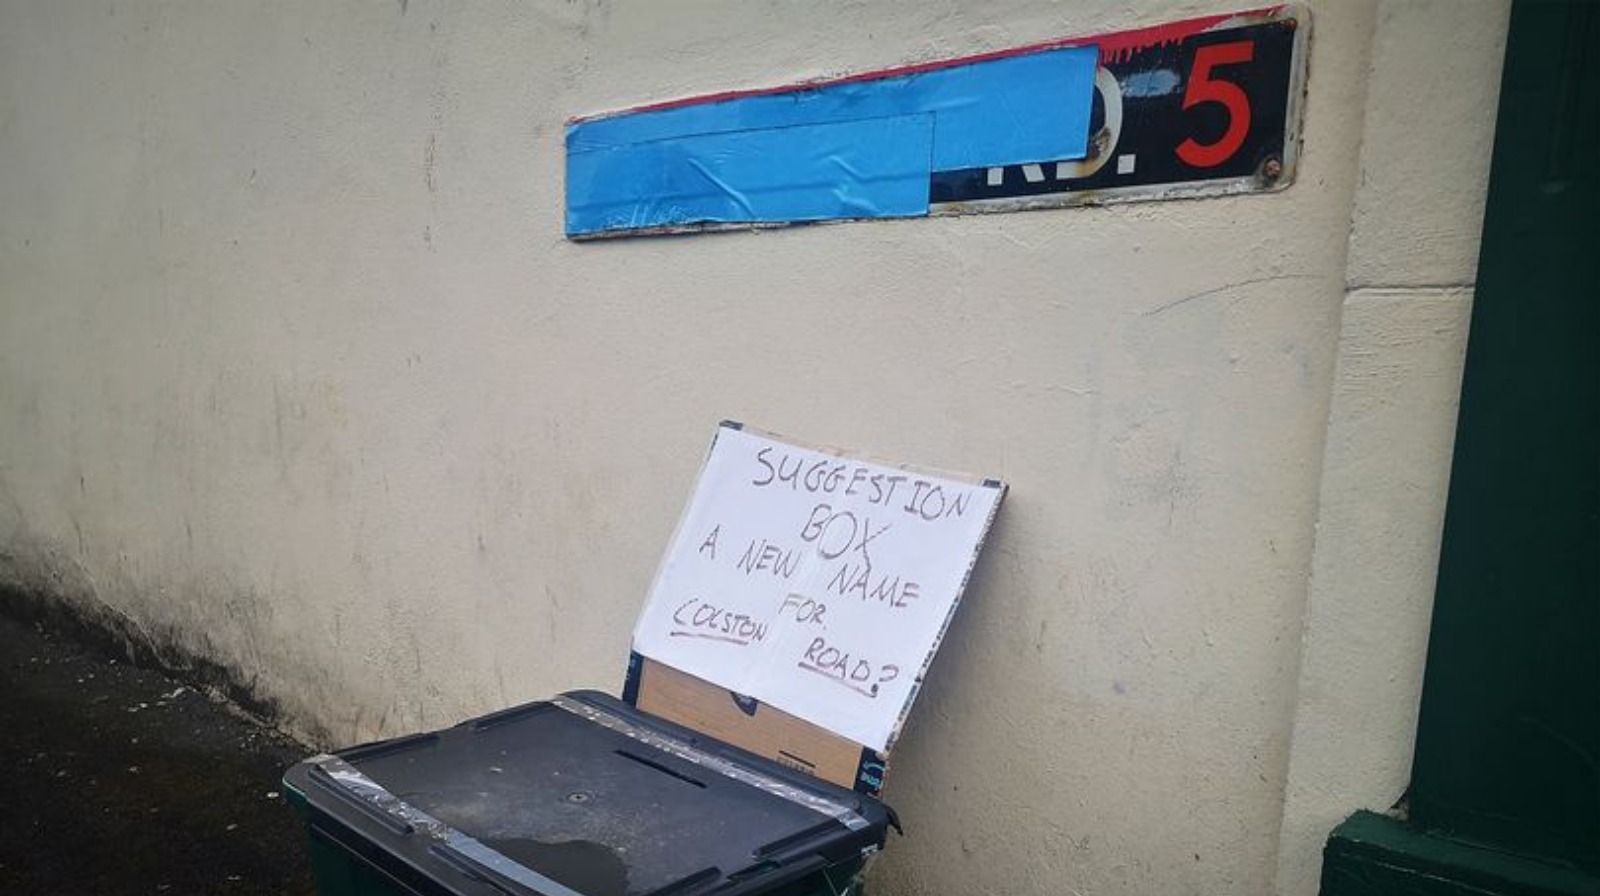 RD. 5
SUGGESTION
BOX
A NEW NAME
FOR
COLSTON
ROAD?